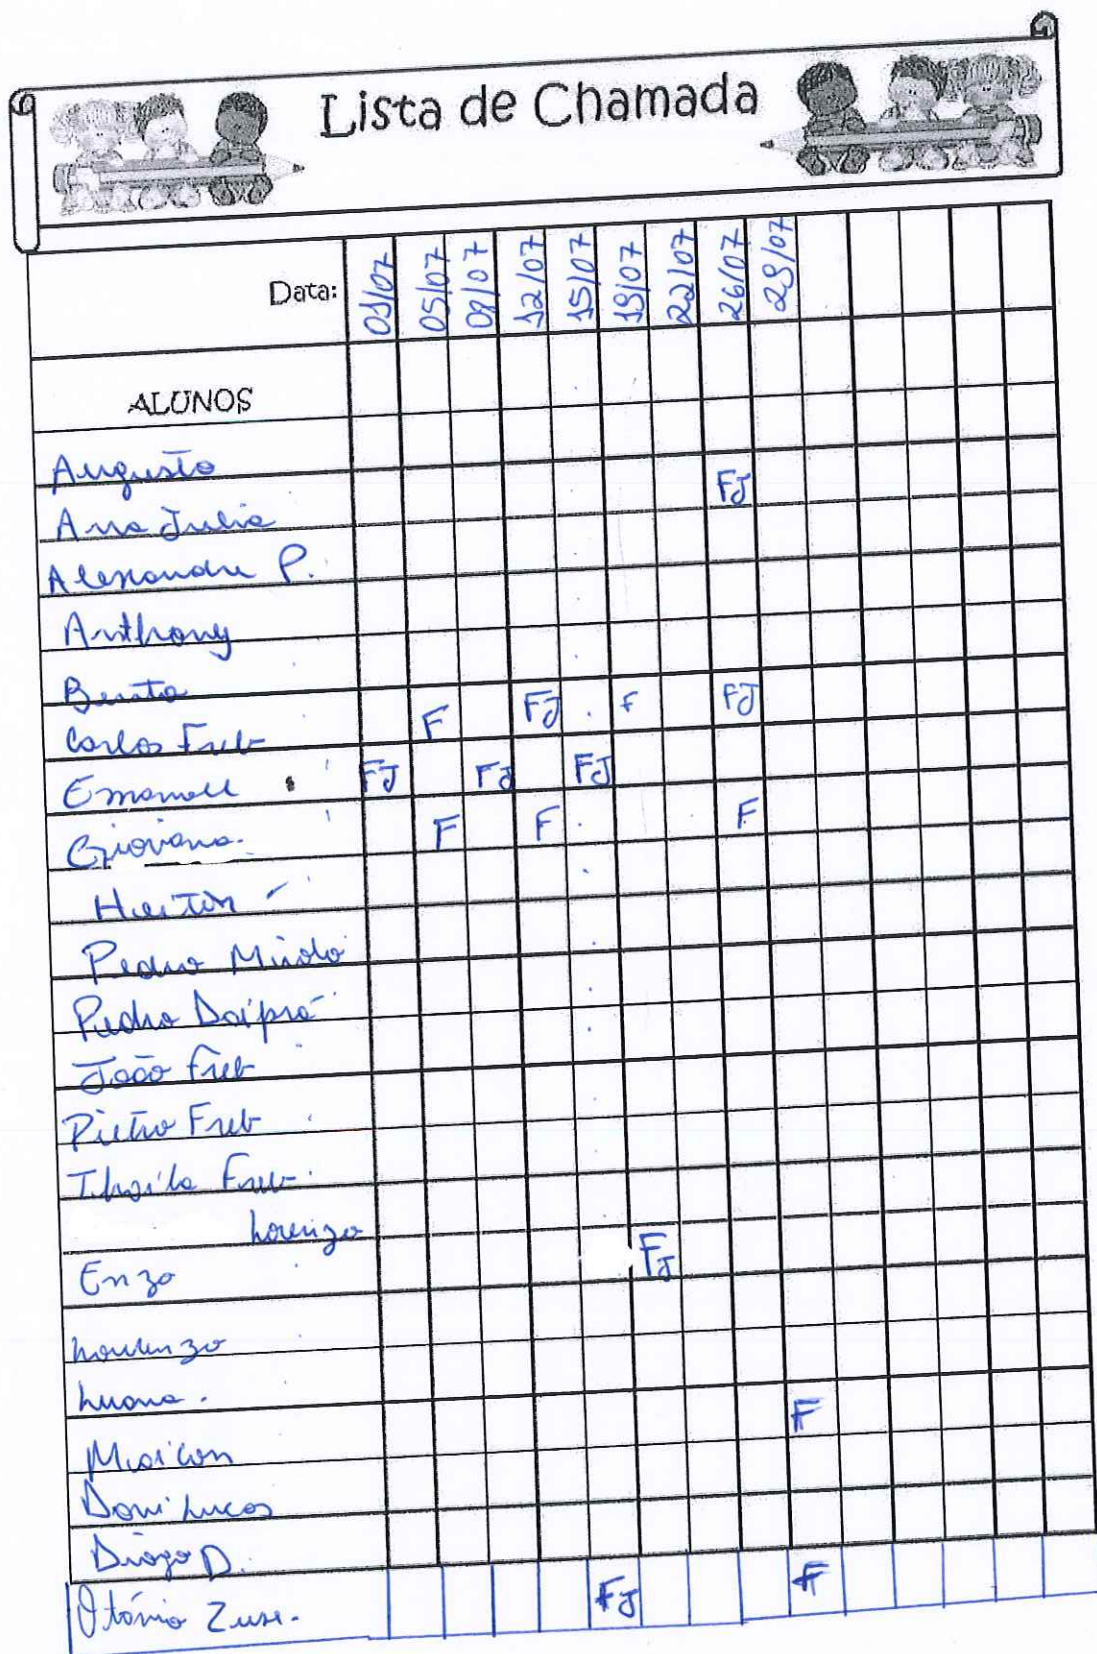 Lista de Chamada
Data: 01/07 05/07 08/07 12/07 15/07 19/07 22/07 26/07 29/07
ALUNOS
Augusto
Ana Julia FJ
Alexandre P.
Anthony
Bento
Carlos Freb F FJ F FJ
Emanoel FJ FJ FJ
Giovana. F F F
Heitor
Pedro
Pedro Daiprá
João Freb
Pietro Freb
Freb
Lorenzo
Enzo FJ
Lourenzo
Luana.
Maicon F
Davi Lucas
Diogo D.
Otávio FJ F